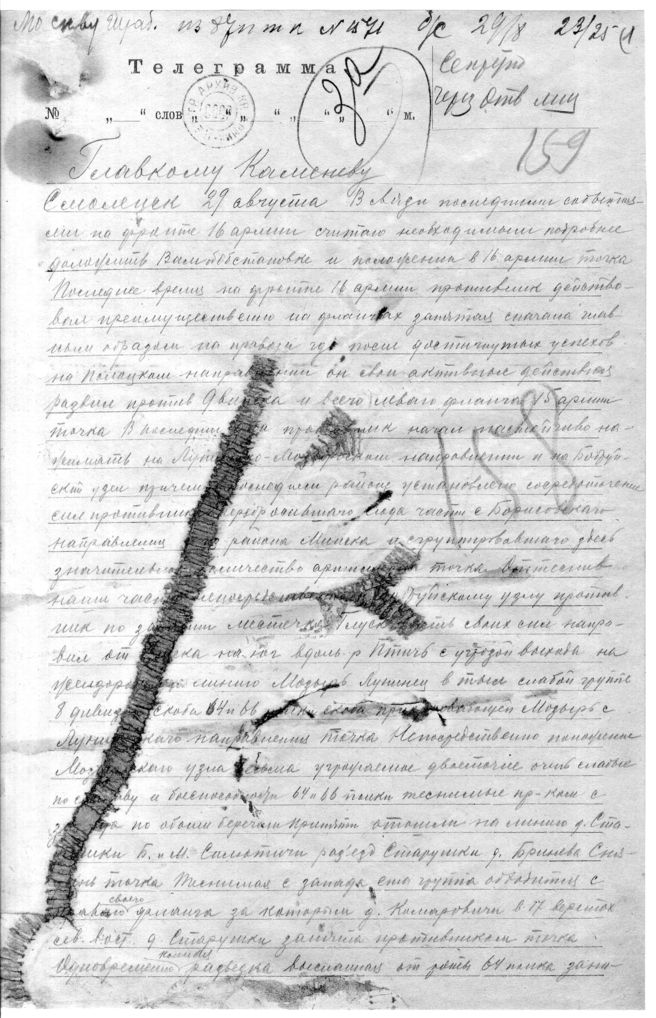 Москву Штаб. из 871 № 1571 с/с 29/8 23/25
Секретно
Телеграмма
через отв лиц
№ „ “ слов „ “ „ “ м.
За
159
Главкому Каменеву
Смоленск 29 августа В связи последними события-
ми на фронте 16 армии считаю необходимым подробнее
доложить Вам обстановке и положении в 16 армии точка
Последнее время на фронте 16 армии противник действо-
вал преимущественно на флангах занятая сначала глав-
ным образом на правом где после достигнутых успехов
на Полоцком направлении он свои активные действия
развил против Двинска и всего левого фланга 15 армии
точка В последние противник начал настойчиво на-
жимать на направлении и на Бобруй-
ский узел причем последнем районе установлено сосредоточение
сил противника перебросившего сюда части с Борисовского
направления района Минска и сгруппировавшего здесь
значительное количество артиллерии точка Оттеснив
наши части Бобруйскому узлу против-
ник по занятии местечка Глуск часть своих сил напра-
вил от Глуска на юг вдоль р Птичь с угрозой выхода на
железнодорожную линию Мозырь Лунинец в тыл слабой группе
8 дивизии скоба 64 и 66 полки скоба прикрывающей Мозырь с
Лунинецкого направления точка Непосредственно положение
Мозырского узла весьма угрожаемое двоеточие очень слабые
по составу и боеспособности 64 и 66 полки теснимые пр-ком с
запада по обоим берегам Припяти отошли на линию д. Ста-
рушки Б. и М. Силютичи раз'езд Старушки д. Бринева
точка Теснимая с запада эта группа обходится с
правого своего фланга за которым д. Комаровичи в 17 верстах
сев. вост. д Старушки занята противником точка
Одновременно конная разведка высланная от роты 64 полка
158